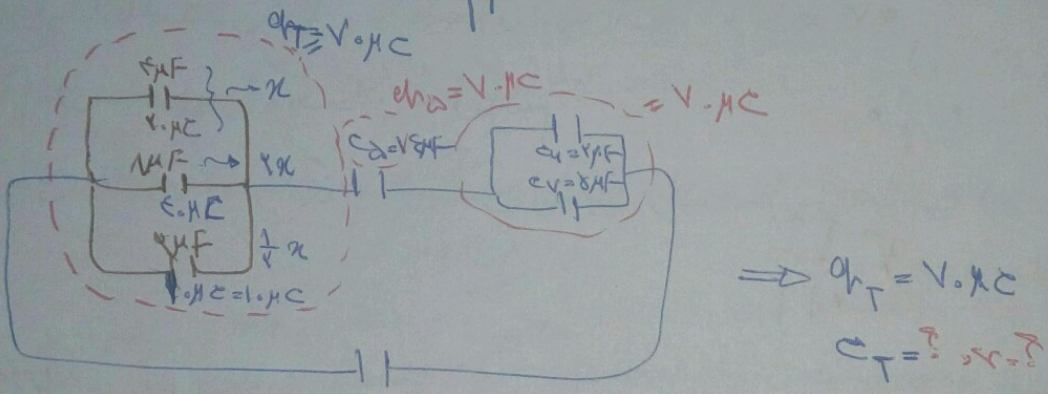 q_T = ۷۰μC
۴μF → x
۲۰μC
۸μF → ۲x
۴۰μC
۲μF
۱/۲ x
۱۰μC = ۱۰μC
q_۵ = ۷۰μC
= ۷۰μC
C_۶ = ۲μF
⇒ q_T = ۷۰μC
C_T = ? , v = ?